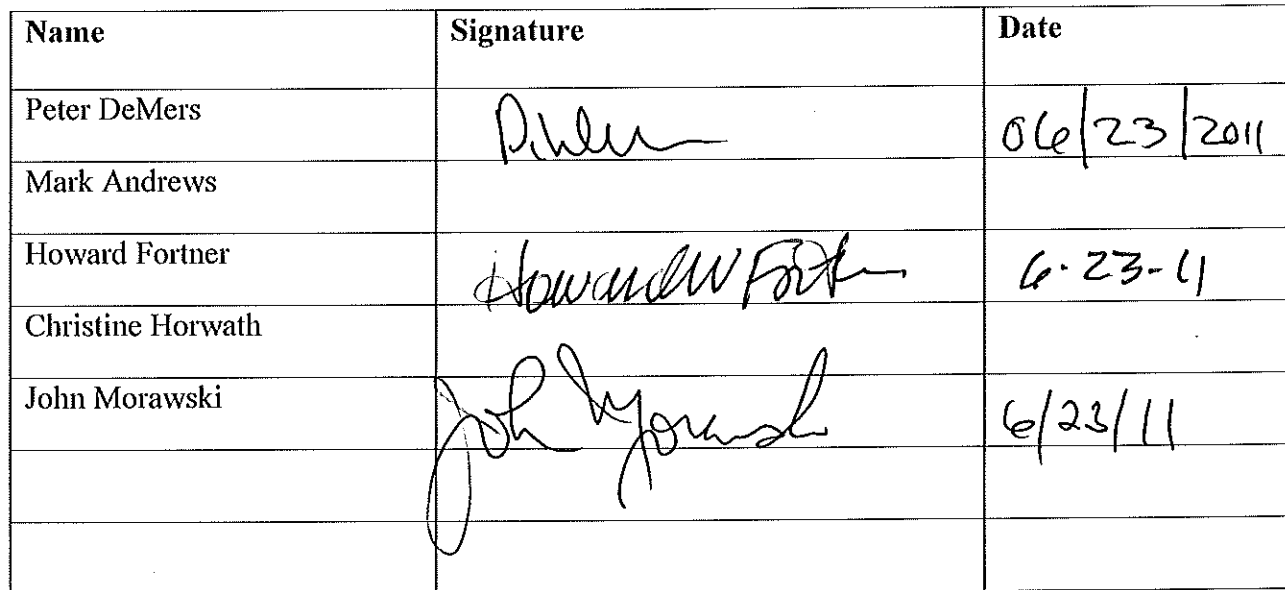 Name Signature Date
Peter DeMers 06/23/2011
Mark Andrews
Howard Fortner Howard W Fortner 6-23-11
Christine Horwath
John Morawski John Morawski 6/23/11